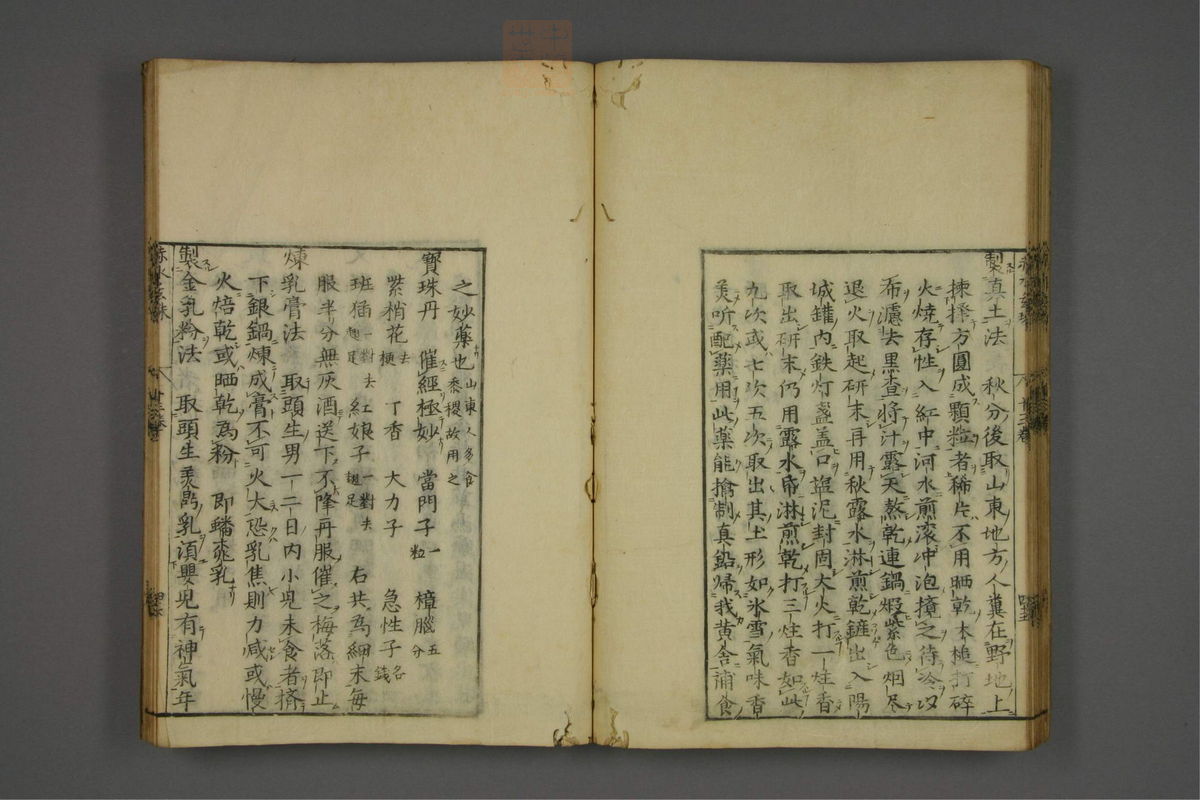 製真土法　秋分後取山東地方人糞在野地上
揀擇方圓成顆粒者稀片不用晒乾木槌打碎
火燒存性入缸中河水煎滾冲泡攪之待冷以
布濾去黒查将汁露天熬乾連鍋煅紫色烟尽
退火取起研末再用秋露水淋煎乾鏟出入陽
城罐内鉄灯盞盖口塩泥封固大火打一炷香
取出研末仍用露水淋煎乾打三炷香如此
九次或七次五次取出其土形如氷雪氣味香
美听配藥用此藥能擒制真鉛帰我黄舎
之妙藥也山東人多食黍稷故用之
寳珠丹　催經極妙　當門子一粒　樟腦五分
紫梢花去梗　丁香　大力子　急性子各錢
班猫一對去翅足　紅娘子一對去翅足　右共為細末毎
服半分無灰酒送下不降再服催之梅落即止
煉乳膏法　取頭生男一二日内小児未食者擠
下銀鍋煉成膏不可火大恐乳焦則力咸或慢
火焙乾或晒乾為粉　即蟠桃乳
製金乳粉法　取頭生乳須嬰児有神氣年